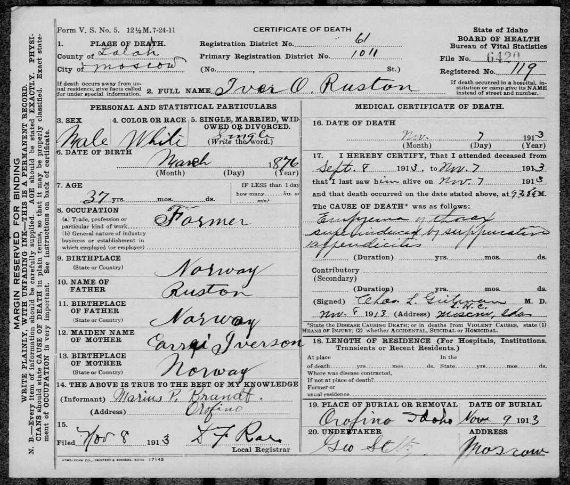 Form V. S. No. 5. 12½M. 7-24-11
CERTIFICATE OF DEATH
State of Idaho
BOARD OF HEALTH
Bureau of Vital Statistics
1. PLACE OF DEATH.
County of Latah
City of Moscow
Registration District No. 61
Primary Registration District No. 1011
(No. St.)
File No. 6420
Registered No. 119
If death occurs away from usual residence, give facts called for under special information.
2. FULL NAME Iver O. Ruston
If death occurred in a hospital, institution or camp give its NAME instead of street and number.
PERSONAL AND STATISTICAL PARTICULARS
3. SEX
Male
4. COLOR OR RACE
White
5. SINGLE, MARRIED, WIDOWED OR DIVORCED.
Single
(Write the word.)
6. DATE OF BIRTH
March 1876
(Month) (Day) (Year)
7. AGE
37 yrs. mos. ds.
IF LESS than 1 day
how many hrs. or min?
8. OCCUPATION
(a) Trade, profession or particular kind of work
(b) General nature of industry business or establishment in which employed (or employer)
Farmer
9. BIRTHPLACE
(State or Country)
Norway
10. NAME OF FATHER
Ruston
11. BIRTHPLACE OF FATHER
(State or Country)
Norway
12. MAIDEN NAME OF MOTHER
Iverson
13. BIRTHPLACE OF MOTHER
(State or Country)
Norway
14. THE ABOVE IS TRUE TO THE BEST OF MY KNOWLEDGE
(Informant) Marius P. Brandt
(Address) Orofino
15.
Filed Nov 8 1913
Local Registrar
MEDICAL CERTIFICATE OF DEATH.
16. DATE OF DEATH
Nov. 7 1913
(Month) (Day) (Year)
17. I HEREBY CERTIFY, That I attended deceased from
Sept. 8 1913, to Nov. 7 1913
that I saw him alive on Nov. 7 1913
and that death occurred on the date stated above, at M.
The CAUSE OF DEATH* was as follows:
Empyema of thorax
superinduced by suppurative
appendicitis
(Duration) yrs. mos. ds.
Contributory
(Secondary)
(Duration) yrs. mos. ds.
(Signed) Chas. L. M. D.
Nov. 8 1913 (Address) Moscow, Ida
*State the DISEASE CAUSING DEATH; or in deaths from VIOLENT CAUSES, state (1) MEANS OF INJURY; (2) whether ACCIDENTAL, SUICIDAL or HOMICIDAL.
18. LENGTH OF RESIDENCE (For Hospitals, Institutions, Transients or Recent Residents.)
At place In the
of death yrs. mos. ds. State yrs. mos. ds.
Where was disease contracted,
if not at place of death?
Former or
usual residence
19. PLACE OF BURIAL OR REMOVAL
Orofino Idaho
DATE OF BURIAL
Nov 9 1913
20. UNDERTAKER
Geo
ADDRESS
Moscow
MARGIN RESERVED FOR BINDING
WRITE PLAINLY, WITH UNFADING INK—THIS IS A PERMANENT RECORD.
N. B.—Every item of information should be carefully supplied. AGE should be stated EXACTLY. PHYSICIANS should state CAUSE OF DEATH in plain terms, so that it may be properly classified. Exact statement of OCCUPATION is very important. See instructions on back of certificate.